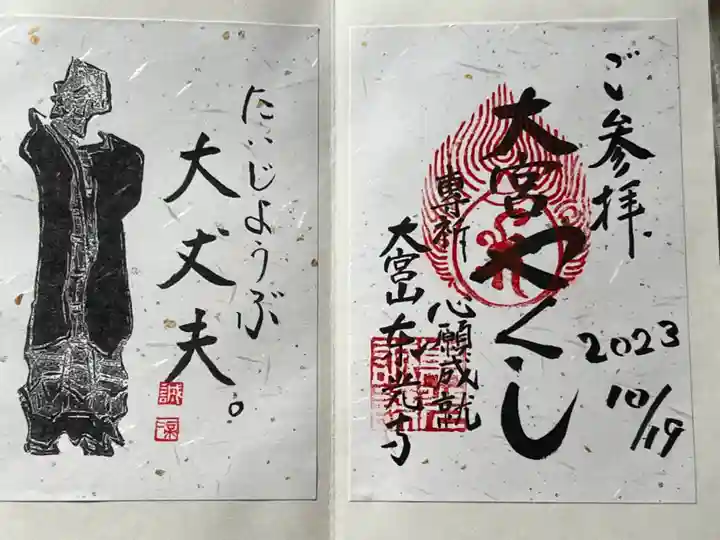 ご参拝
大宮やくし
専祈 心願成就
大宮山
2023
10/19
だいじょうぶ
大丈夫。